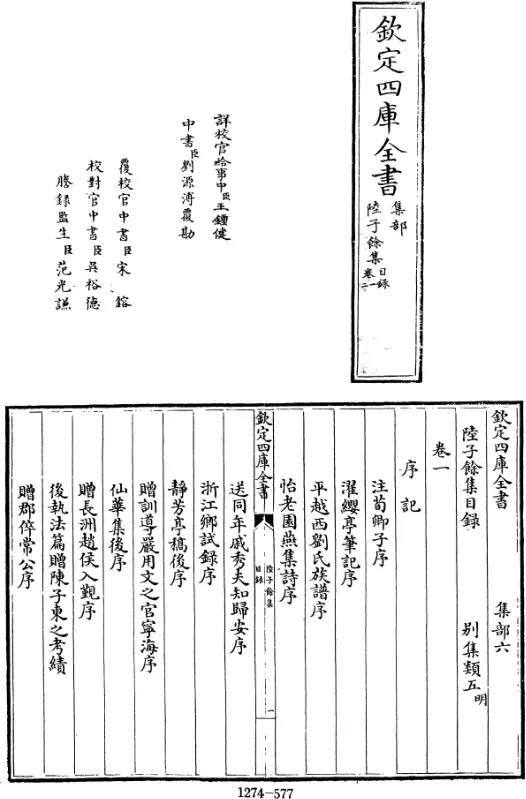 欽定四庫全書
集部
陸子餘集
目錄
卷一
詳校官給事中臣王鍾健
中書臣劉源溥覆勘
覆校官中書臣宋鎔
校對官中書臣吳裕德
謄錄監生臣范光謙
欽定四庫全書 集部六
陸子餘集目錄 別集類五明
卷一
序記
注荀卿子序
濯纓亭筆記序
平越西劉氏族譜序
怡老園燕集詩序
欽定四庫全書
陸子餘集
目錄
一
送同年戚秀夫知歸安序
浙江鄉試錄序
靜芳亭稿後序
贈訓導嚴用文之官寧海序
仙華集後序
贈長洲趙侯入覲序
後執法篇贈陳子東之考績
贈郡倅常公序
1274-577